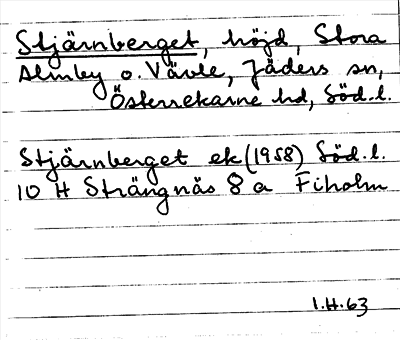 Stjärnberget, höjd, Stora
Älmby o. Vävle, Jäders sn,
Österrekarne hd, Söd.l.
Stjärnberget ek (1958) Söd.l.
10 H Strängnäs 8 a Fiholm
1.H.63